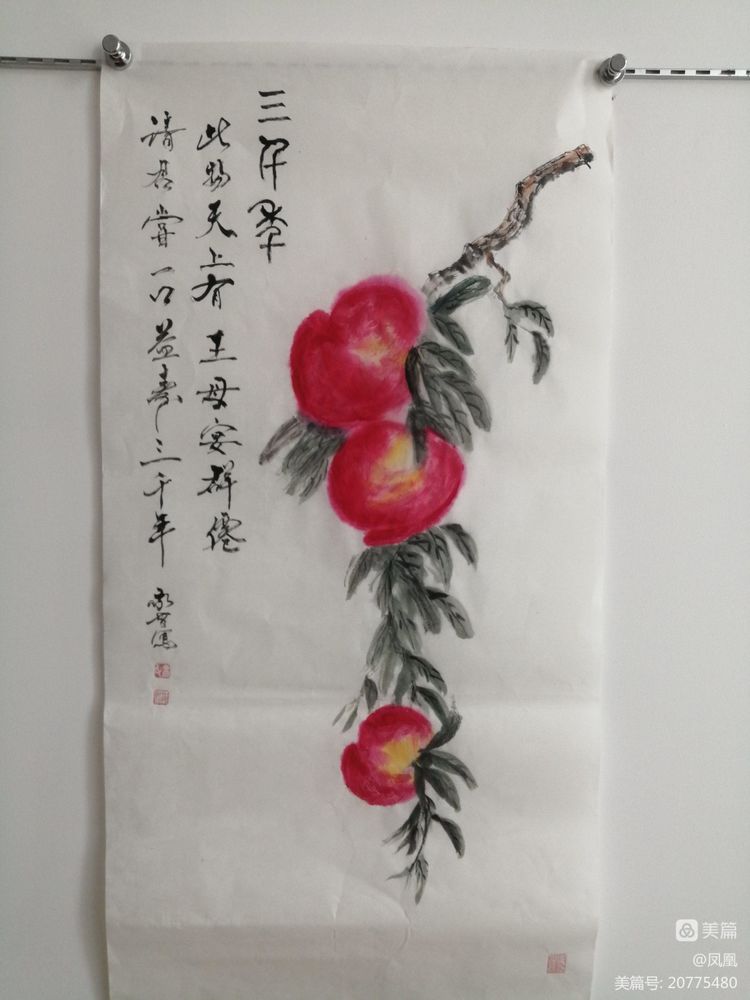 三千年
此物天上有王母宴群僊
请君尝一口益寿三千年
美篇
@凤凰
美篇号: 20775480